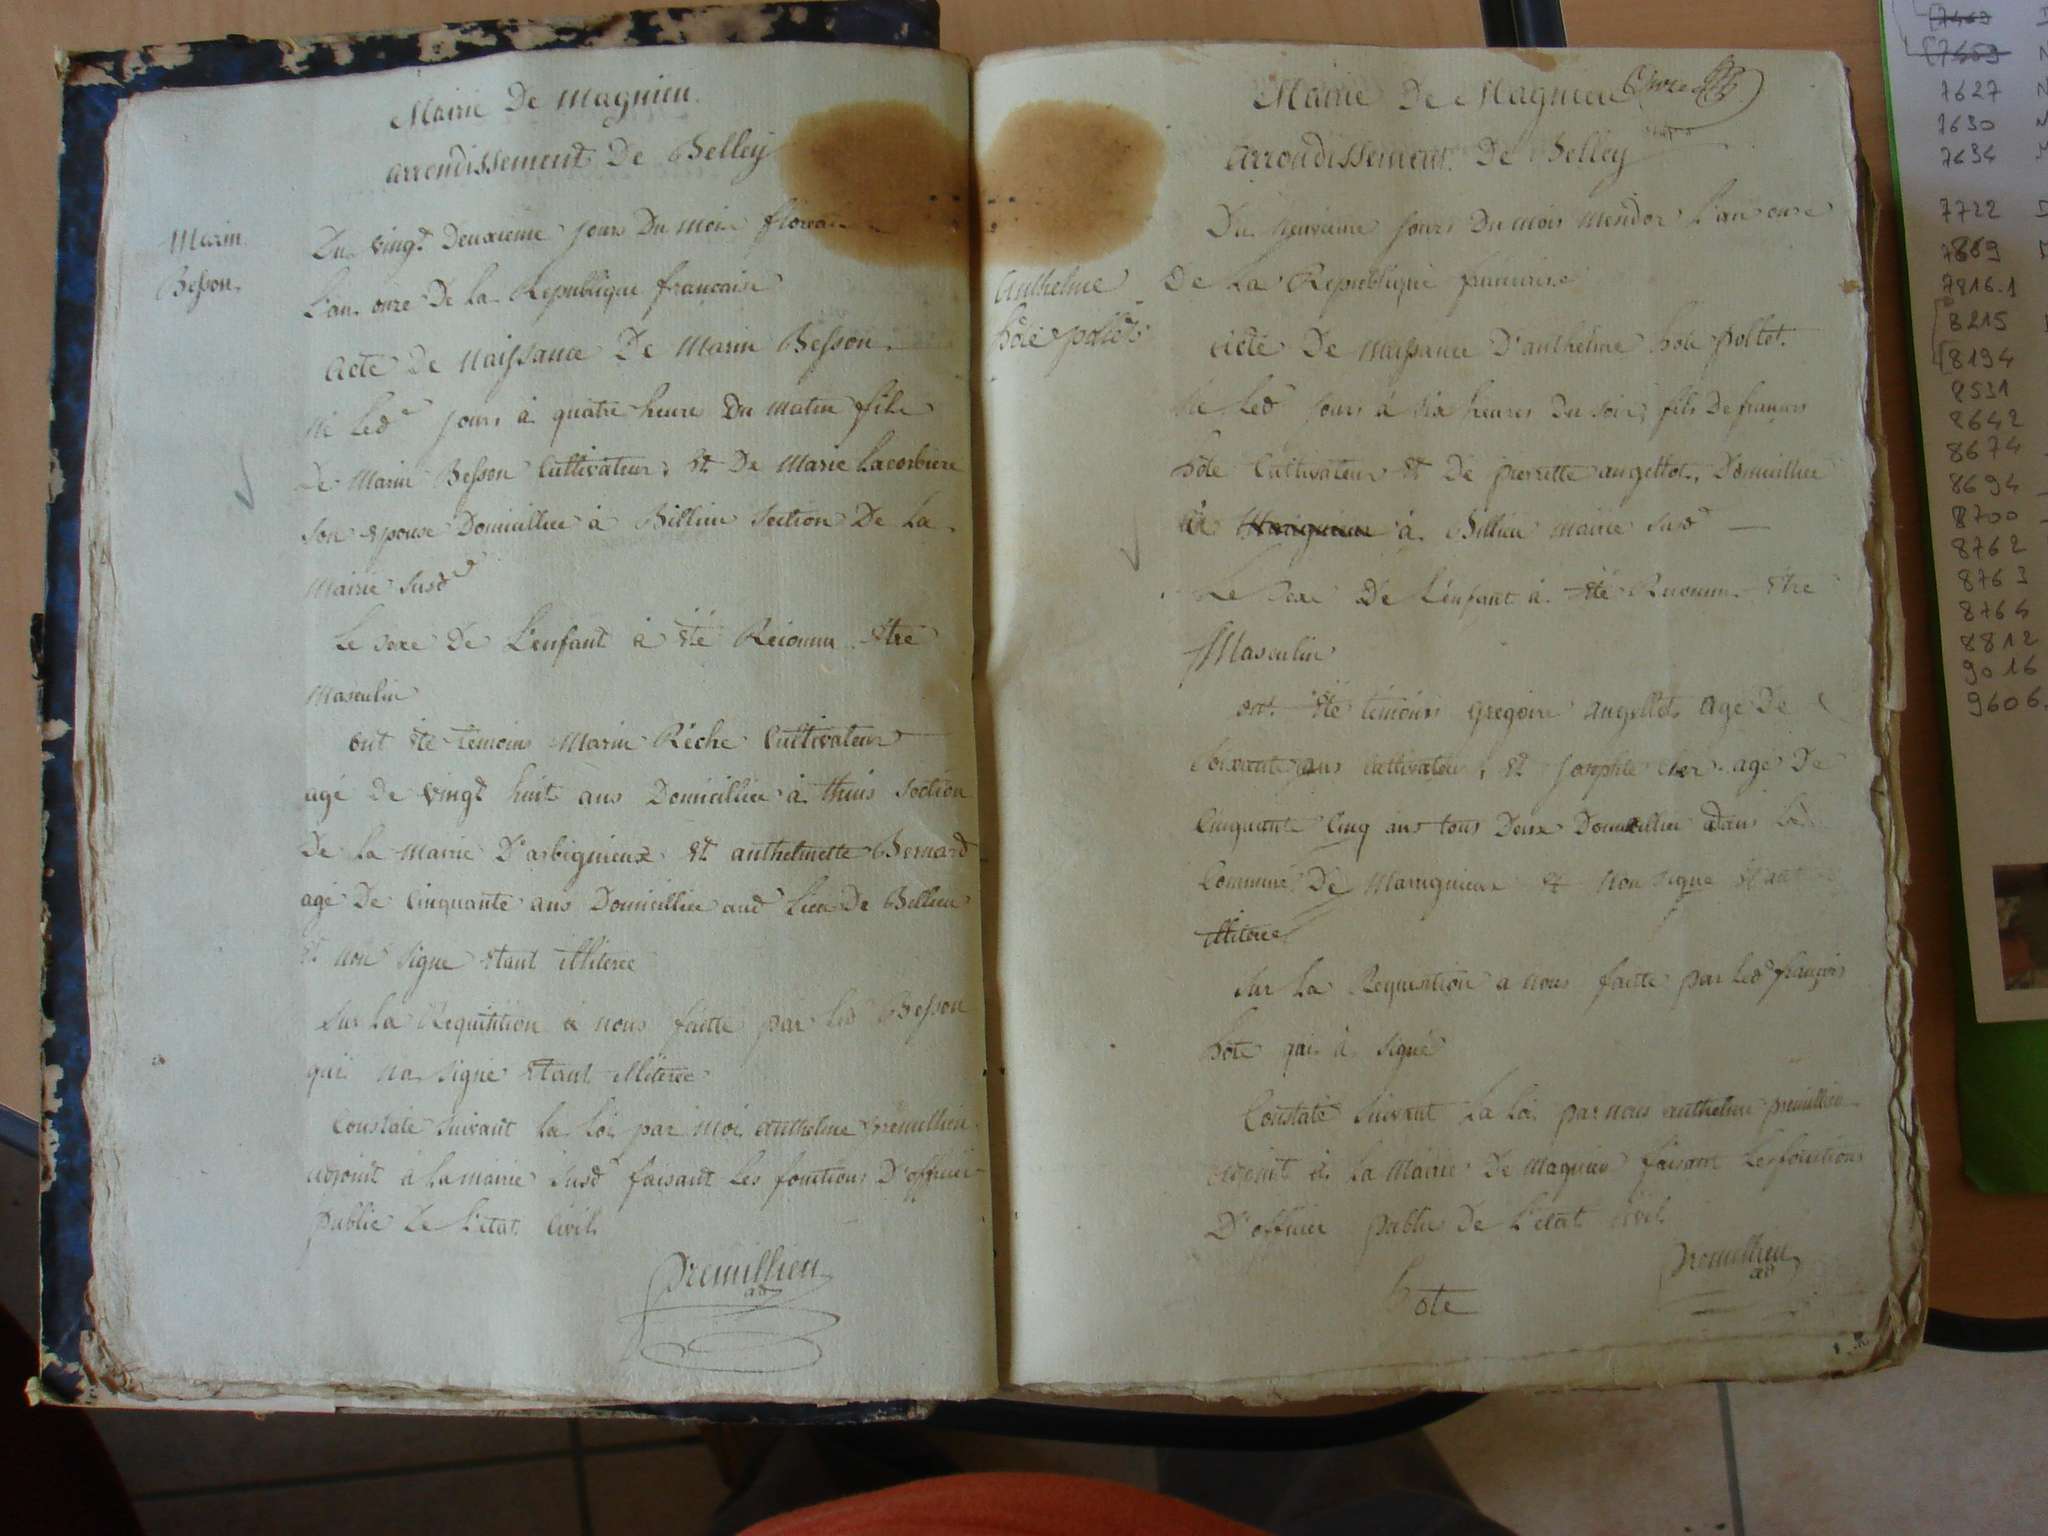 Mairie De magnieu
arrondissement De Belley
Marin
Besson.
Du vingt Deuxieme jours Du mois floreal
L'an onze De la Republique francaise
acte De Naissance De Marin Besson.
Né led jours à quatre heure Du matin fils
De Marin Besson Cultivateur, et De Marie Lacorbiere
son epouse Domicillies à Billieu section De La
Mairie susd
Le sexe De L'enfant à été Reconnu être
Masculin
ont été temoins Marin Réche Cultivateur
agé de vingt huit ans Domicillier à thuis section
De la mairie D'arbignieux et anthelmette Bernard
agé De Cinquante ans Domicillier aud Lieu De Billieu
et non signe etant illiterée
Sur la Requisition à nous faitte par led Besson
qui na signe etant illiterée
Constaté suivant la Loi par moi anthelme premillieu
adjoint à la mairie susd faisant les fonctions D'officier
public De L'etat Civil
premillieu
ad
Mairie De Magnieu
arrondissement De Belley
Du neuvieme jours Du mois mesidor L'an onze
De La Republique francaise
Anthelme
hôte poltet
acté De naissance D'anthelme hote poltet.
Né Led jours à six heures Du soir, fils De francois
hôte Cultivateur et De pierrette angellot, Domicillier
à Billieu mairie susd
Le sexe De L'enfant à été Reconnu être
Masculin
ont été témoins gregoire angellot agé De
soixante ans cultivateur, et josephte cler agé De
Cinquante Cinq ans tous Deux Domicillier Dans La
Commune De Marignieux et non signe etant
illiterée
Sur La Requisition a nous faitte par led françois
hôte qui à signé
Constaté suivant La Loi par nous anthelme premillieu
adjoint à la Mairie De magnieu faisant Les fonctions
D'officier public De L'etat civil
premillieu
ad
hote
7463
7469
7627 N
7630
7634
7722
7869
7816.1
8215
8194
8531
8642
8674
8694
8700
8762
8763
8764
8812
9016
9606